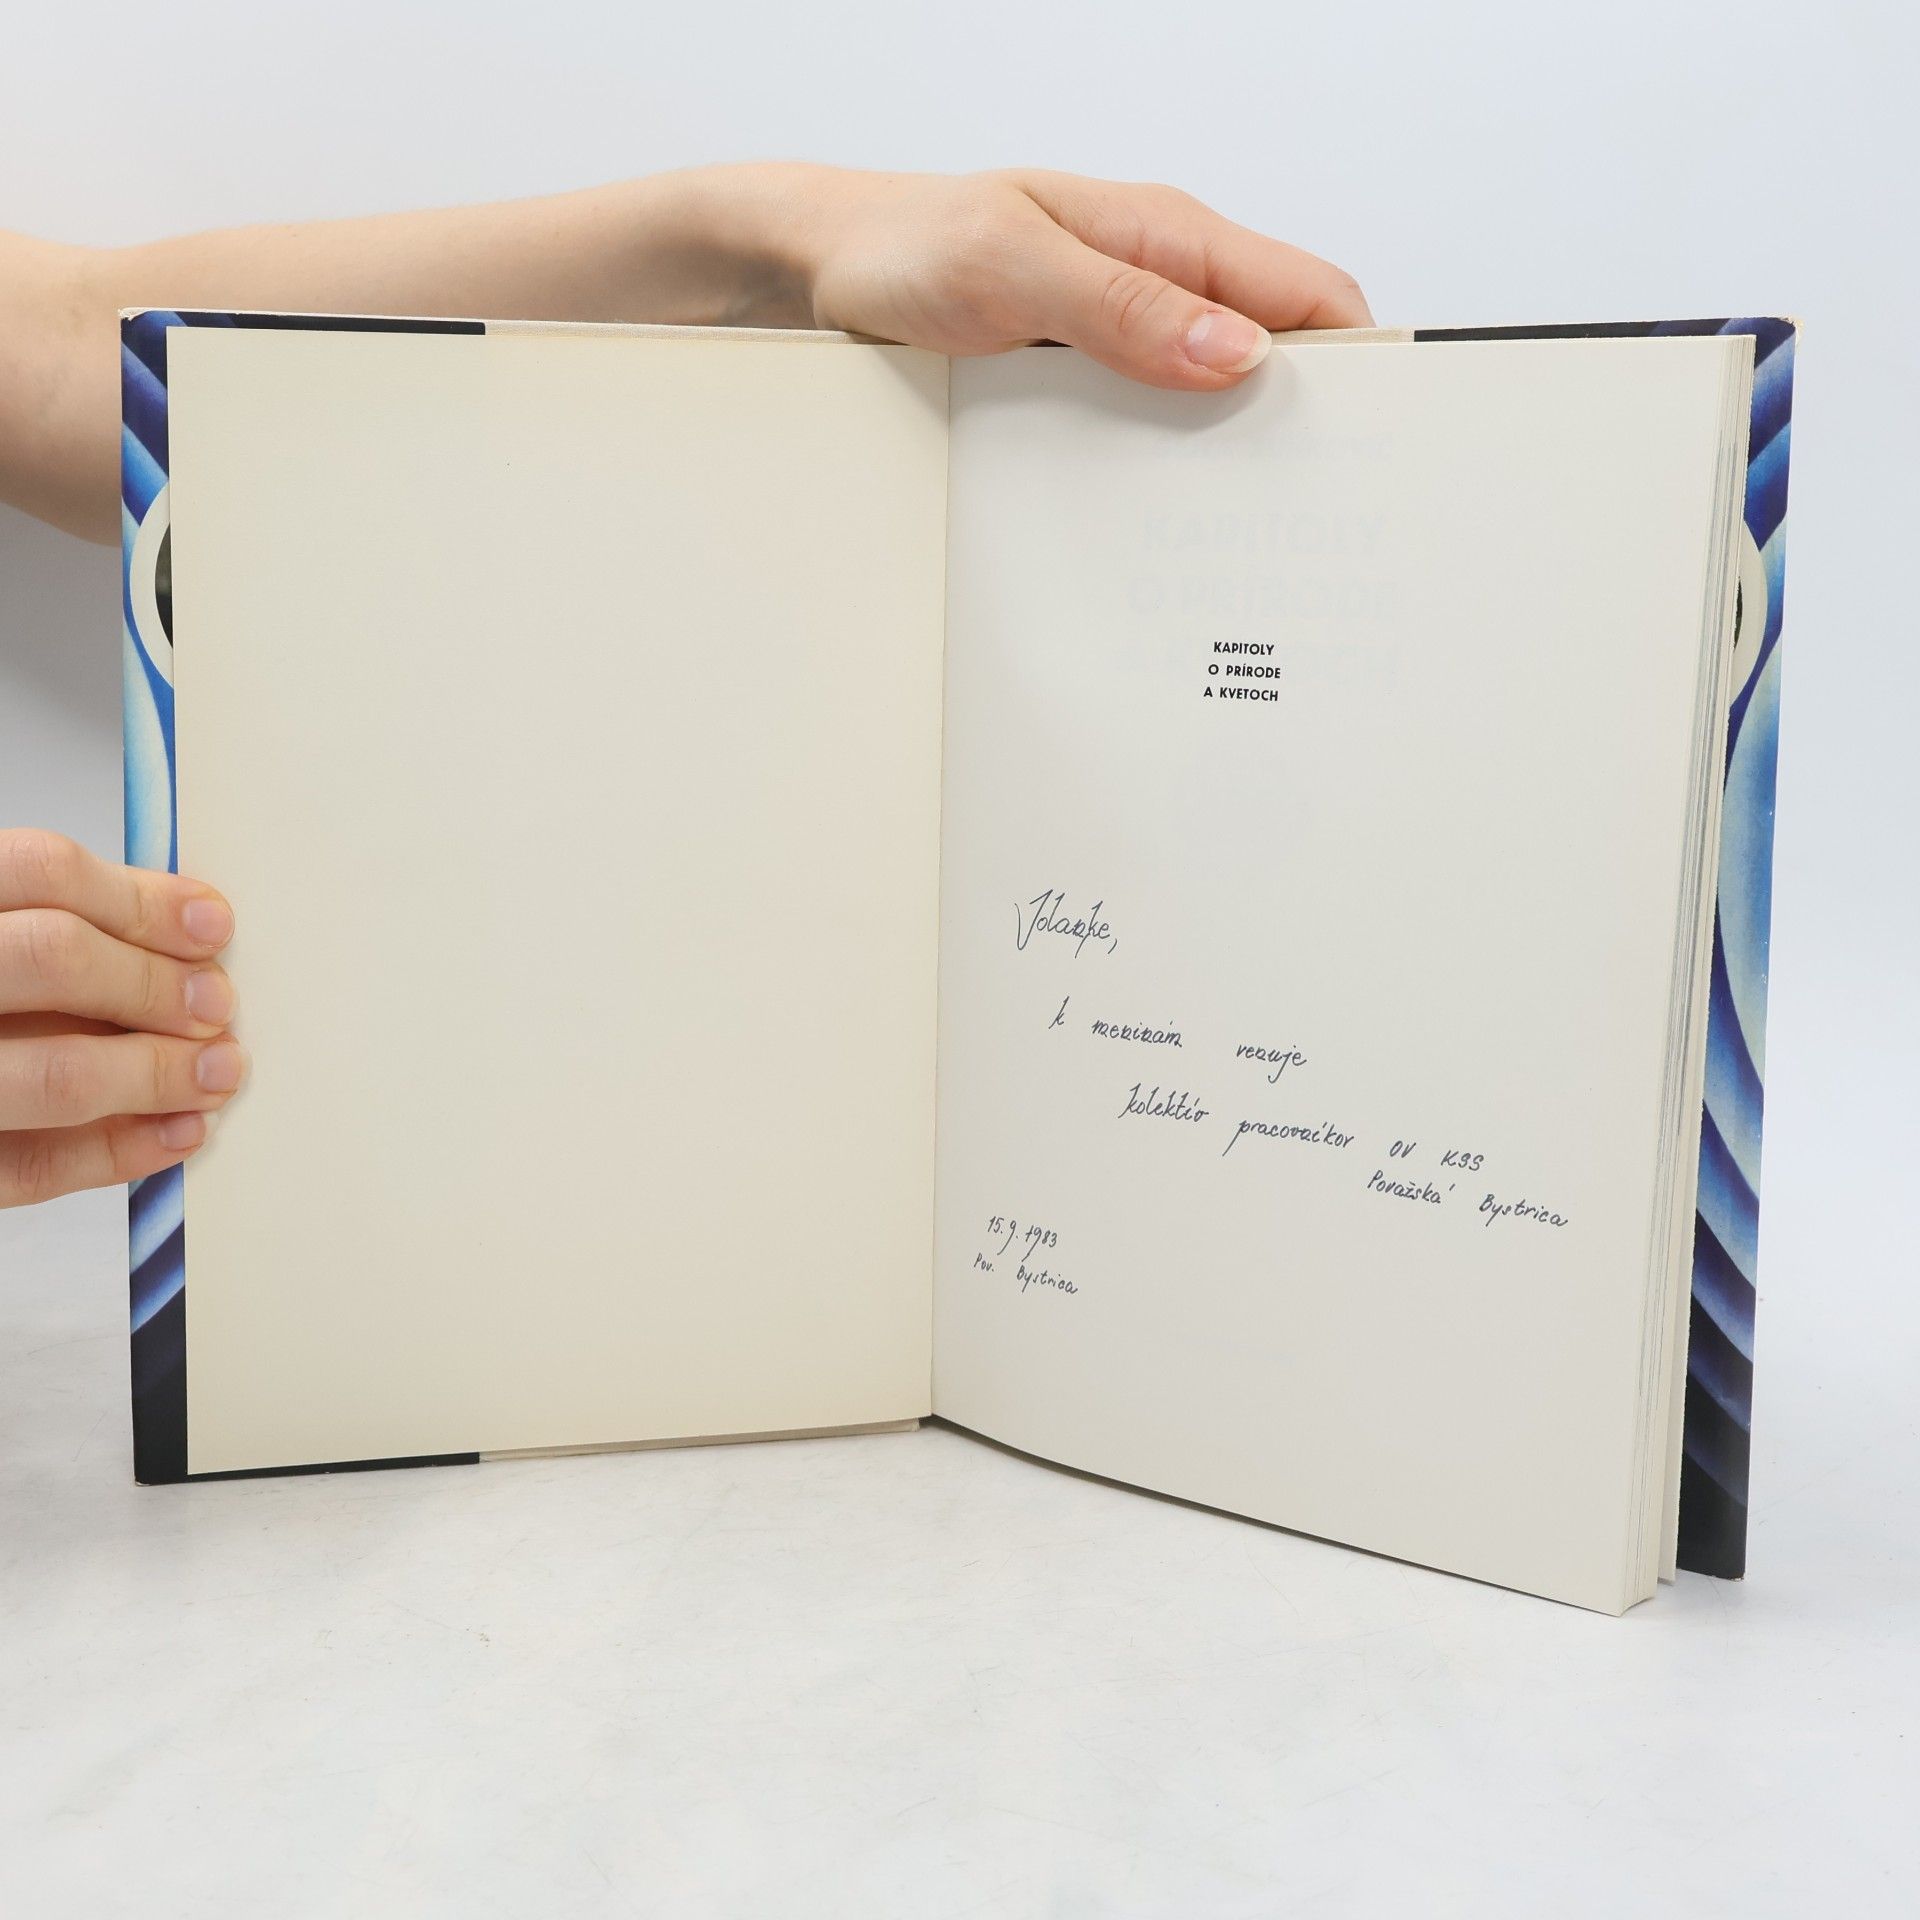 KAPITOLY
O PRÍRODE
A KVETOCH
Jolanke,
k meninám venuje
kolektív pracovníkov OV KSS
Považská Bystrica
15.9.1983
Pov. Bystrica
KAPITOLY
O PRÍRODE